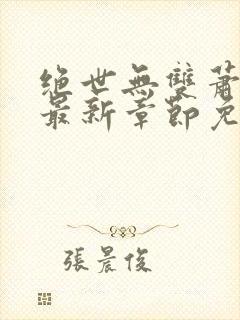 絕世無雙蕭
最新章節免
張晨俊